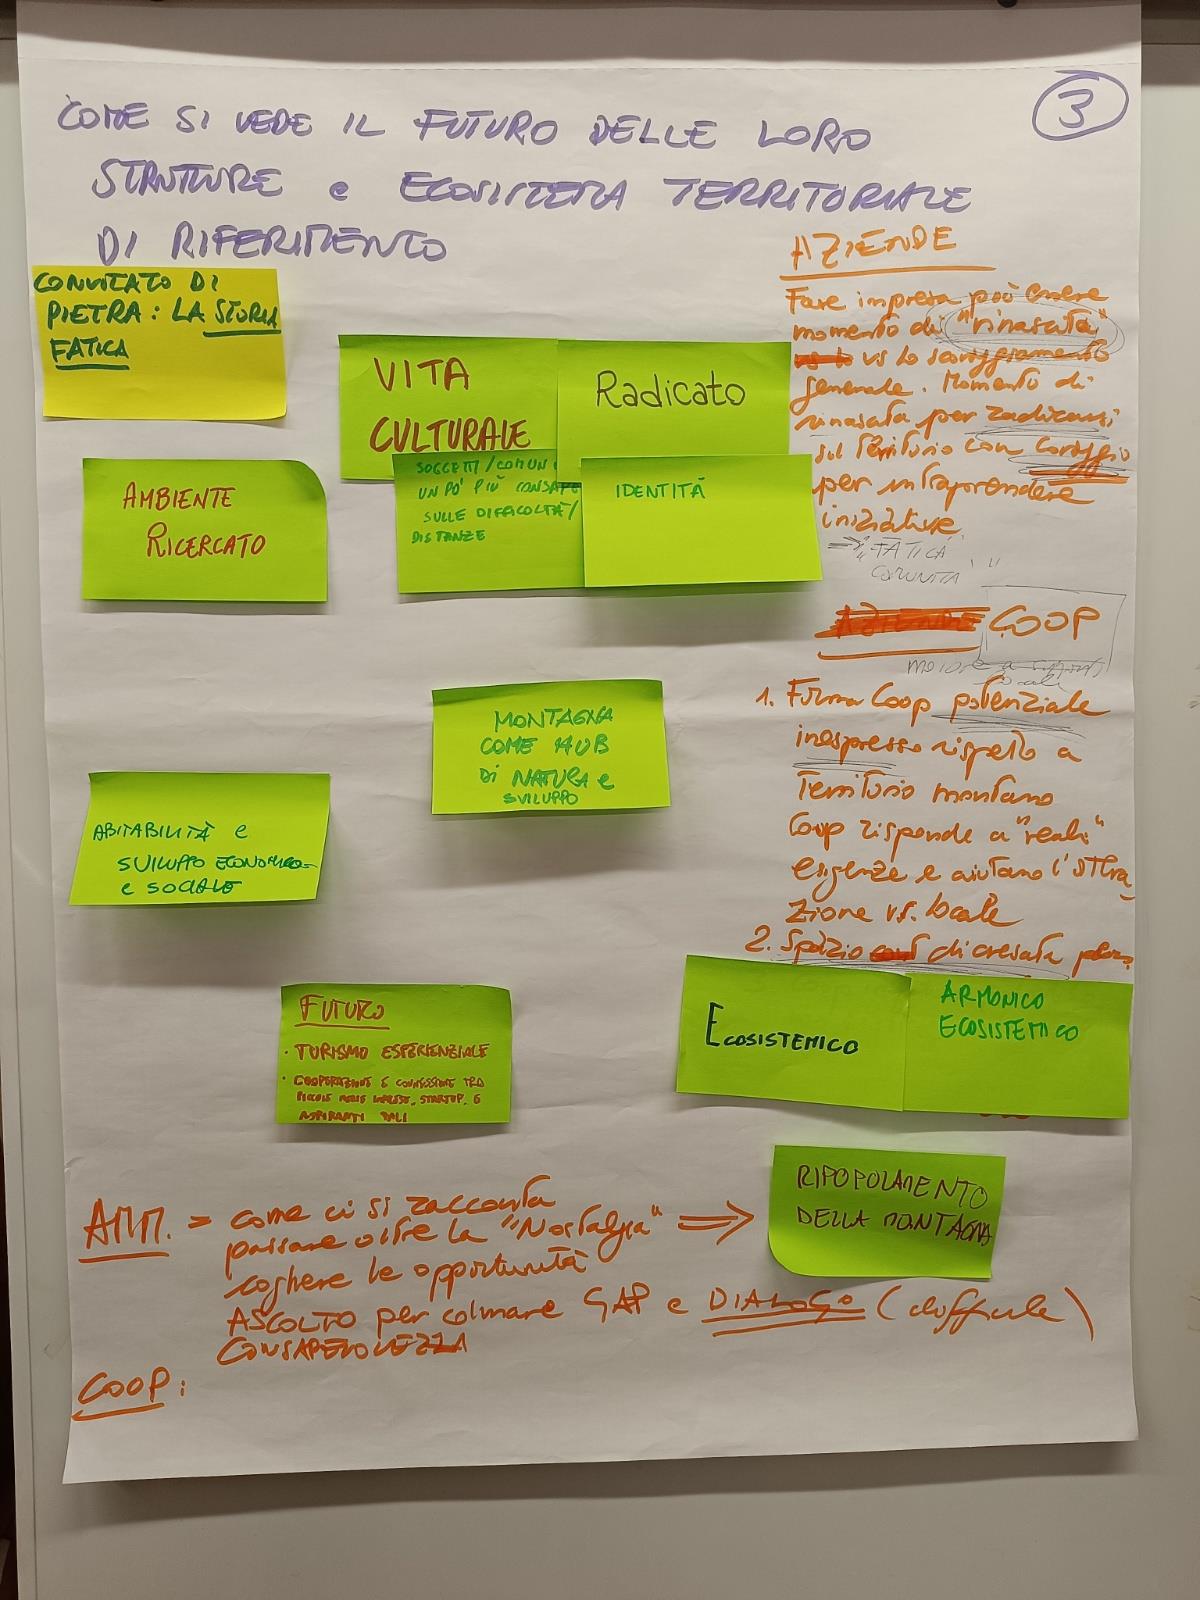 3
COME SI VEDE IL FUTURO DELLE LORO
STRUTTURE e ECOSISTEMA TERRITORIALE
DI RIFERIMENTO
CONVITATO DI
PIETRA: LA STORIA
FATICA
VITA
CULTURALE
Radicato
AMBIENTE
RICERCATO
SOGGETTI/COMUNI
UN PO' PIÙ CONSAP
SULLE DIFFICOLTÀ/
DISTANZE
IDENTITÀ
AZIENDE
Fare impresa può essere
momento di "rinascita"
vs lo scoraggiamento
generale. Momento di
rinascita per radicarsi
sul territorio con coraggio
per intraprendere
iniziative
=> "FATICA
COMUNITÀ"
AZIENDE COOP
locali
1. Forma Coop potenziale
inespresso rispetto a
Territorio montano
Coop risponde a "reali"
esigenze e aiutano l'attra
zione vs. locale
2. Spazio di crescita
MONTAGNA
COME HUB
DI NATURA e
SVILUPPO
ABITABILITÀ e
SVILUPPO ECONOMICO
e SOCIALE
FUTURO
• TURISMO ESPERIENZIALE
• COOPERAZIONE E CONNESSIONE TRA
PICCOLE MEDIE IMPRESE, STARTUP, E
ASPIRANTI TALI
ECOSISTEMICO
ARMONICO
ECOSISTEMICO
RIPOPOLAMENTO
DELLA MONTAGNA
AMM. > come ci si racconta
passare oltre la "Nostalgia" =>
cogliere le opportunità
ASCOLTO per colmare GAP e DIALOGO (difficile)
CONSAPEVOLEZZA
COOP: